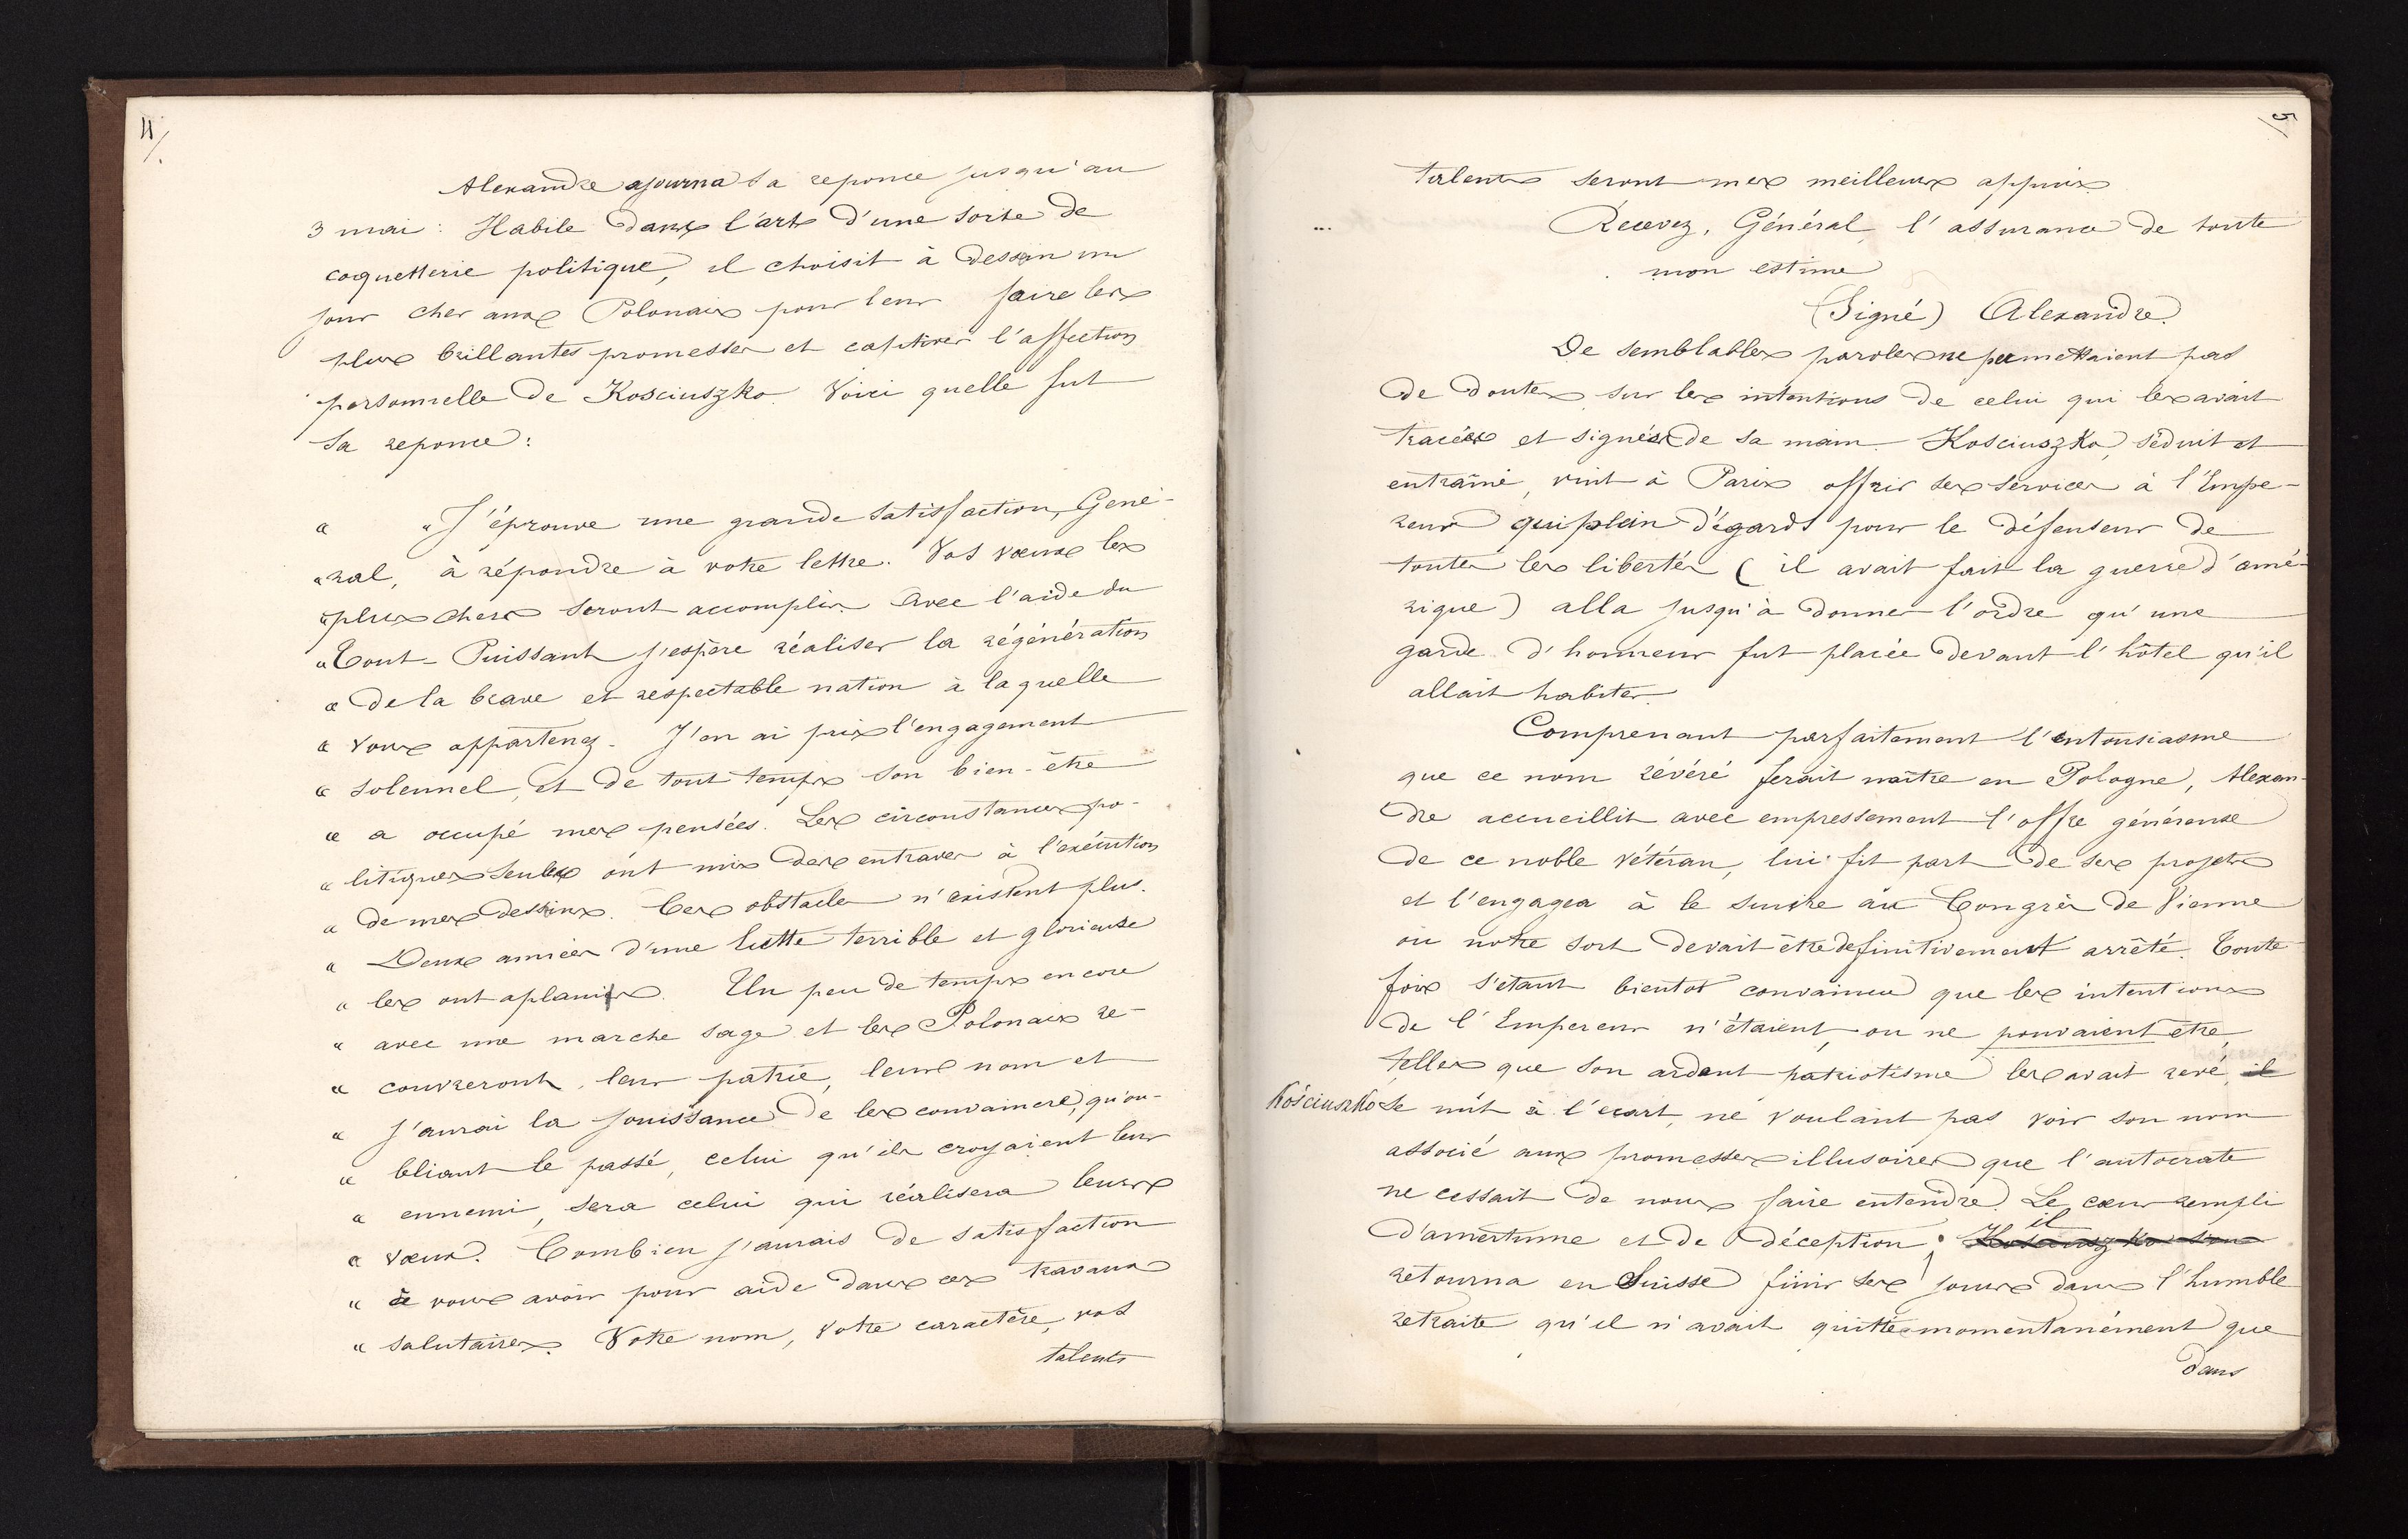 4/.
Alexandre ajourna sa reponce jusqu'au
3 mai : Habile dans l'art d'une sorte de
coquetterie politique, il choisit à dessein un
jour cher aux Polonais pour leur faire les
plus brillantes promesses et captiver l'affection
personnelle de Kosciuszko. Voici quelle fut
sa reponce :
« "J'éprouve une grande satisfaction, Gene-
« ral, à répondre à votre lettre. Vos vœux les
« plus chers seront accomplis. Avec l'aide du
« Tout-Puissant j'espère réaliser la régénération
« de la brave et respectable nation à laquelle
« vous appartenez. J'en ai pris l'engagement
« solennel, et de tout temps son bien-être
« a occupé mes pensées. Les circonstances po-
« litiques seules ont mis des entraves à l'exécution
« de mes desseins. Ces obstacles n'existent plus.
« Deux années d'une lutte terrible et glorieuse
« les ont aplanis. Un peu de temps encore
« avec une marche sage et les Polonais re-
« couvreront leur patrie, leur nom et
« j'aurai la jouissance de les convaincre, qu'ou-
« bliant le passé, celui qu'ils croyaient leur
« ennemi, sera celui qui réalisera leurs
« vœux. Combien j'aurais de satisfaction
« de vous avoir pour aide dans ces travaux
« salutaires. Votre nom, votre caractère, vos
talents
5/
talents seront mes meilleurs appuis.
Recevez, Général, l'assurance de toute
mon estime
(Signé) Alexandre.
De semblables paroles ne permettaient pas
de doutes sur les intentions de celui qui les avait
tracées et signées de sa main. Kosciuszko, séduit et
entraîné, vint à Paris offrir ses services à l'Empe-
reur qui plein d'égards pour le défenseur de
toutes les libertés (il avait fait la guerre d'amé-
rique) alla jusqu'à donner l'ordre qu'une
garde d'honneur fut placée devant l'hôtel qu'il
allait habiter.
Comprenant parfaitement l'entousiasme
que ce nom révéré ferait naître en Pologne, Alexan-
dre accueillit avec empressement l'offre généreuse
de ce noble vétéran, lui fit part de ses projets
et l'engagea à le suivre au Congrès de Vienne
où notre sort devait être definitivement arrêté. Toute-
fois s'étant bientot convaincu que les intentions
de l'Empereur n'étaient, ou ne pouvaient être,
telles que son ardent patriotisme les avait revé, il
Kościuszko se mit à l'ecart, ne voulant pas voir son nom
associé aux promesses illusoires que l'autocrate
ne cessait de nous faire entendre. Le cœur rempli
il
d'amertume et de déception, Kosciuszko s'en
retourna en Suisse finir ses jours dans l'humble
retraite qu'il n'avait quittée momentanément que
dans